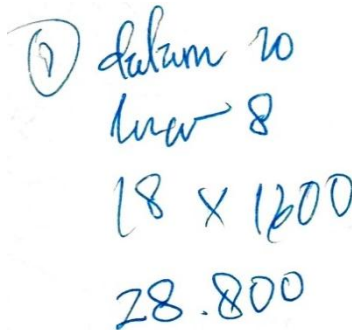 ① dalam 10
luar 8
18 x 1600
28.800